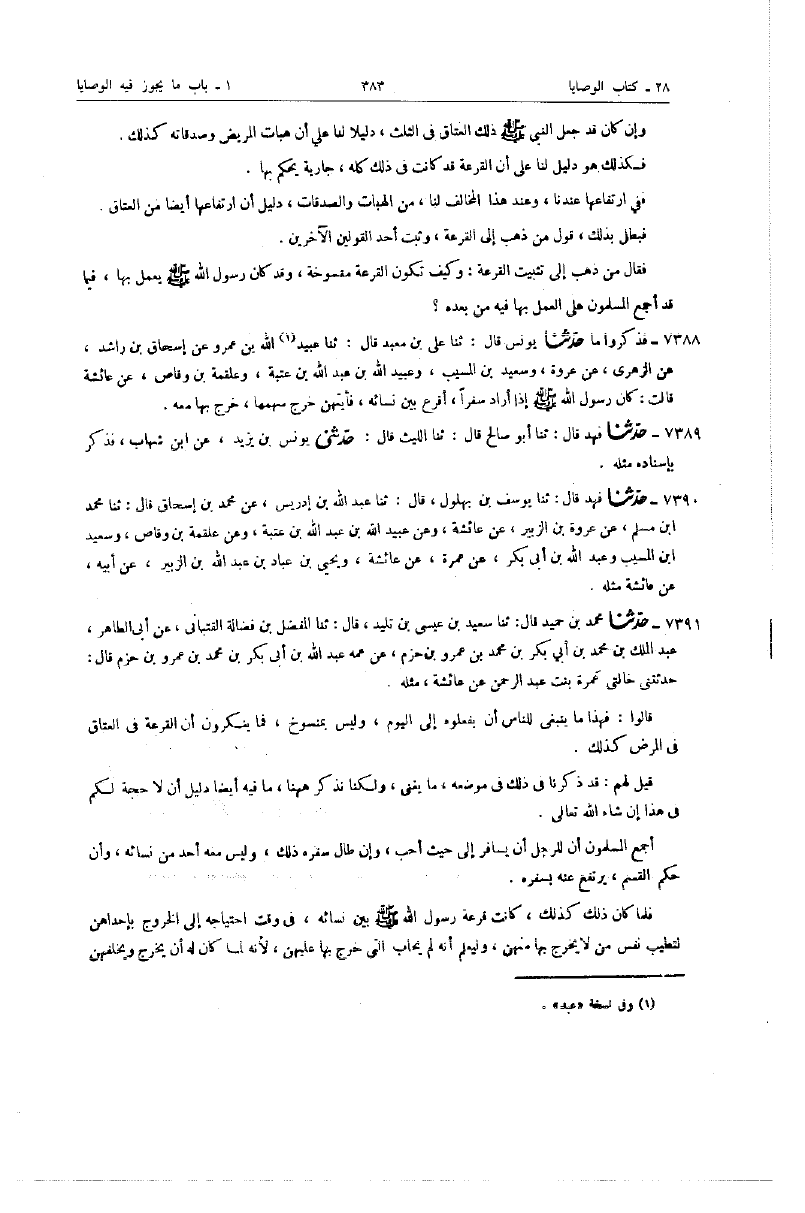 ٢٨ ـ كتاب الوصايا ٣٨٣ ١ ـ باب ما يجوز فيه الوصايا
وإن كان قد جعل النبي ﷺ ذلك العتاق فى الثلث ، دليلا لنا على أن هبات المريض وصدقاته كذلك .
فكذلك هو دليل لنا على أن القرعة قد كانت فى ذلك كله ، جارية يحكم بها .
فى ارتفاعها عندنا ، وعند هذا المخالف لنا ، من الهبات والصدقات ، دليل أن ارتفاعها أيضا من العتاق .
فبطل بذلك ، قول من ذهب إلى القرعة ، وثبت أحد القولين الآخرين .
فقال من ذهب إلى تثبيت القرعة : وكيف تكون القرعة مفسوخة ، وقد كان رسول الله ﷺ يعمل بها ، فيما
قد أجمع المسلمون على العمل بها فيه من بعده ؟
٧٣٨٨ ـ فذكروا ما حدثنا يونس قال : ثنا على بن معبد قال : ثنا عبيد(١) الله بن عمرو عن إسحاق بن راشد ،
عن الزهرى ، عن عروة ، وسعيد بن المسيب ، وعبيد الله بن عبد الله بن عتبة ، وعلقمة بن وقاص ، عن عائشة
قالت : كان رسول الله ﷺ إذا أراد سفراً ، أقرع بين نسائه ، فأيتهن خرج سهمها ، خرج بها معه .
٧٣٨٩ ـ حدثنا فهد قال : ثنا أبو صالح قال : ثنا الليث قال : حدثني يونس بن يزيد ، عن ابن شهاب ، فذكر
بإسناده مثله .
٧٣٩٠ ـ حدثنا فهد قال : ثنا يوسف بن بهلول ، قال : ثنا عبد الله بن إدريس ، عن محمد بن إسحاق قال : ثنا محمد
ابن مسلم ، عن عروة بن الزبير ، عن عائشة ، وعن عبيد الله بن عبد الله بن عتبة ، وعن علقمة بن وقاص ، وسعيد
ابن المسيب وعبد الله بن أبى بكر ، عن عمرة ، عن عائشة ، ويحيى بن عباد بن عبد الله بن الزبير ، عن أبيه ،
عن عائشة مثله .
٧٣٩١ ـ حدثنا محمد بن حميد قال: ثنا سعيد بن عيسى بن تليد ، قال : ثنا المفضل بن فضالة القتبانى ، عن أبى الطاهر ،
عبد الملك بن محمد بن أبي بكر بن محمد بن عمرو بن حزم ، عن عمه عبد الله بن أبى بكر بن محمد بن عمرو بن حزم قال :
حدثتنى خالتى عمرة بنت عبد الرحمن عن عائشة ، مثله .
قالوا : فهذا ما ينبغى للناس أن يفعلوه إلى اليوم ، وليس بمنسوخ ، فما ينكرون أن القرعة فى العتاق
فى المرض كذلك .
قيل لهم : قد ذكرنا فى ذلك فى موضعه ، ما يغنى ، ولكنا نذكر ههنا ، ما فيه أيضا دليل أن لا حجة لكم
فى هذا إن شاء الله تعالى .
أجمع المسلمون أن للرجل أن يسافر إلى حيث أحب ، وإن طال سفره ذلك ، وليس معه أحد من نسائه ، وأن
حكم القسم ، يرتفع عنه بسفره .
فلما كان ذلك كذلك ، كانت قرعة رسول الله ﷺ بين نسائه ، فى وقت احتياجه إلى الخروج بإحداهن
لتطيب نفس من لا يخرج بها منهن ، وليعلم أنه لم يحاب التى خرج بها عليهن ، لأنه لما كان له أن يخرج ويخلفهن
(١) وفى نسخة «عبد» .